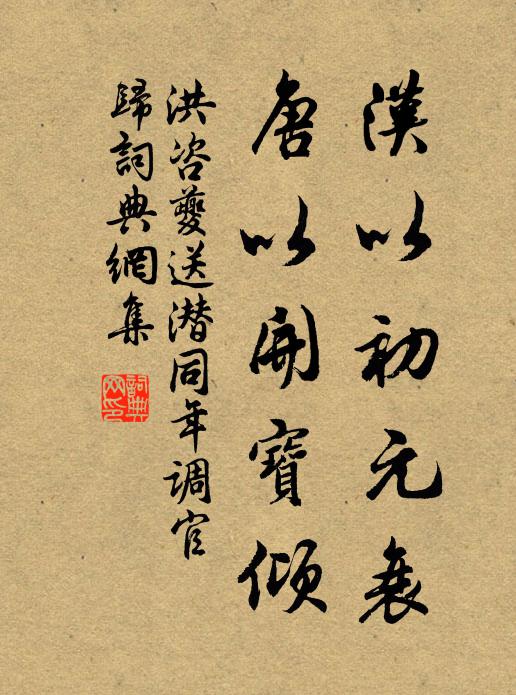 漢以初元衰
唐以開寶傾
洪咨夔送潜同年調官
歸詞典網集
詞典
网印